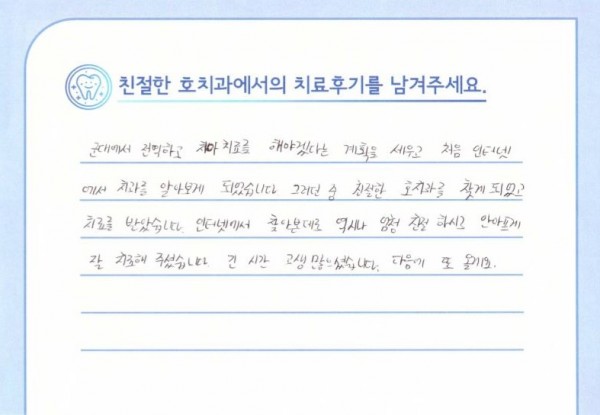 친절한 호치과에서의 치료후기를 남겨주세요.
군대에서 전역하고 치아 치료를 해야겠다는 계획을 세우고 처음 인터넷
에서 치과를 알아보게 되었습니다 그러던 중 친절한 호치과를 찾게 되었고
치료를 받았습니다. 인터넷에서 찾아본대로 역시나 엄청 친절 하시고 안아프게
잘 치료해 주셨습니다 긴 시간 고생 많으셨습니다. 다음에 또 올게요.